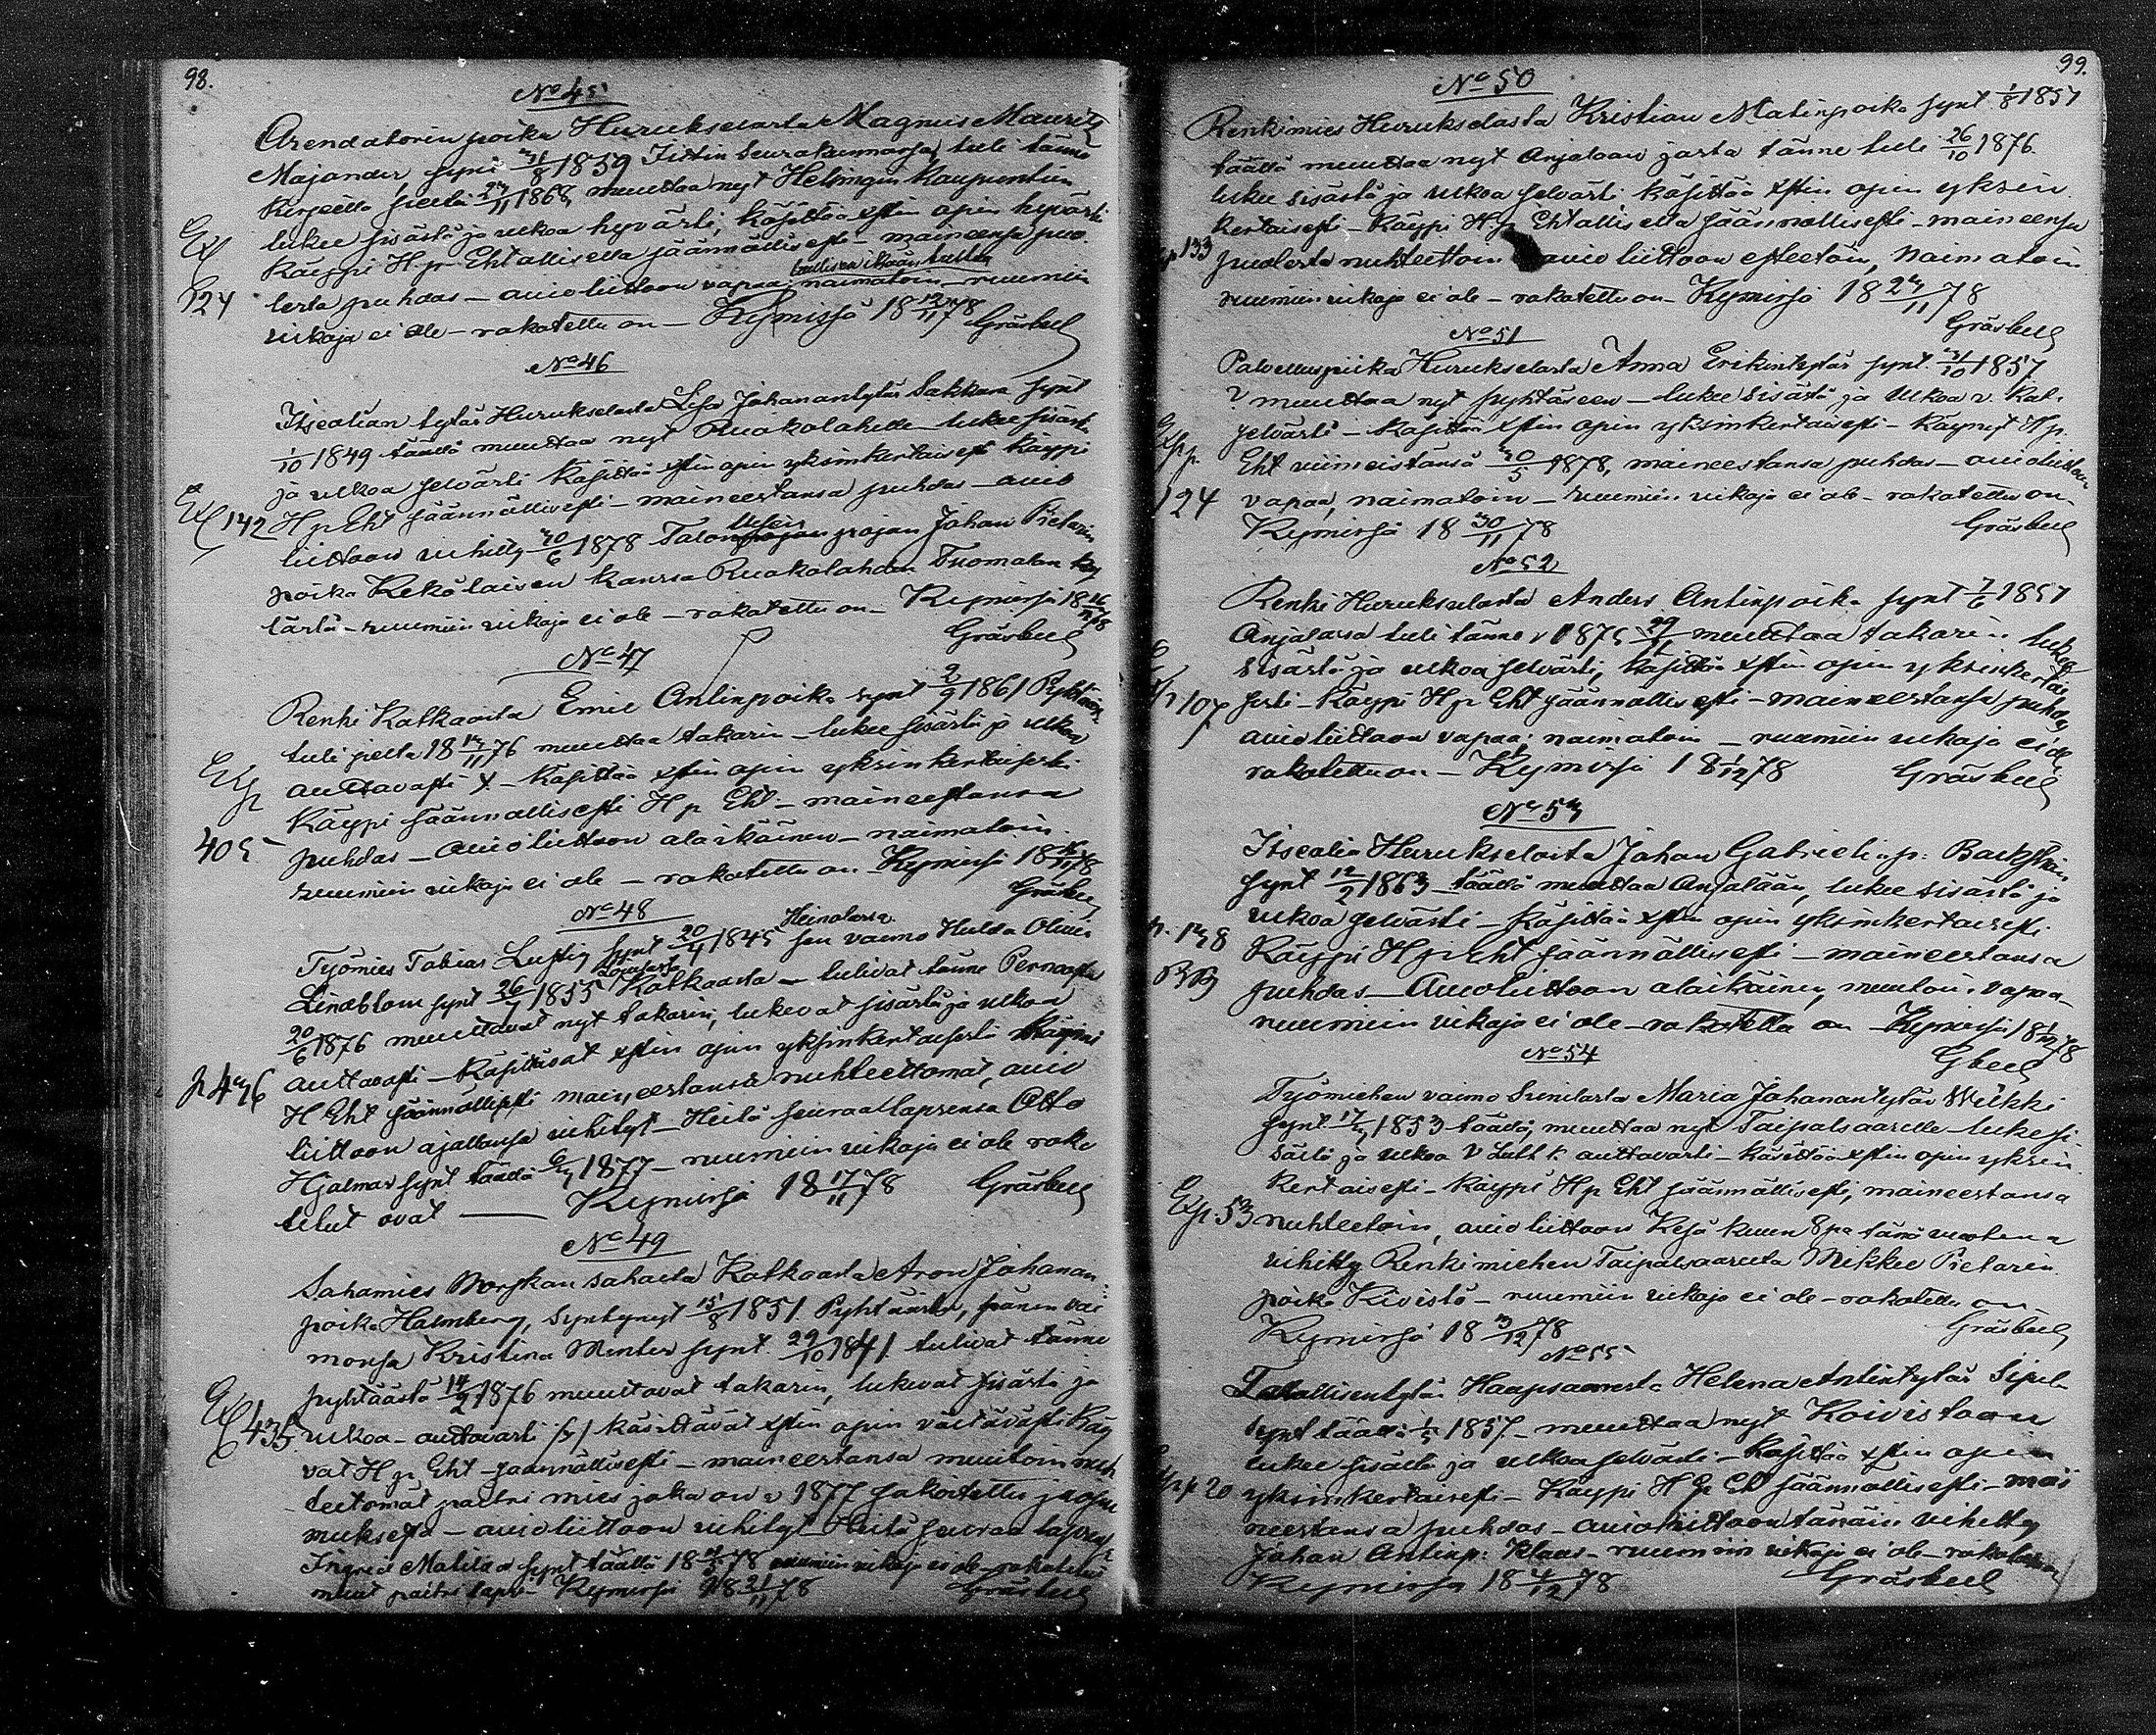 98.
No 45
Arendatorin poika Hurukselasta Magnus Mauritz
Majander, synt 31/8 1859 Iittin Seurakunnassa, tuli tänne
kirjeellä sieltä 1868, muuttaa nyt Helsingin Kaupunkiin
lukee sisästä ja ulkoa hyvästi, käsittää xstin opin hyvästi
Käypi H. p. Ehtallisella säännöllisesti - maineensa puo-
laillisen ikään tullut
lesta puhdas - avioliittoon vapaa, naimatoin - ruumiin
124
vikaja ei ole - rokotettu on - Kymissä 18 12/11 78
Gräsbeck
No 46
Itsealian tytär Hurukselasta Lisa Johanantytär Sakkara synt
1/10 1849 täällä muuttaa nyt Ruokolahelle - lukee sisästä
ja ulkoa selvästi käsittää xstin opin yksinkertaisesti käypi
142 H p Eht säännöllisesti - maineestansa puhdas - avio
liittoon vihitty 30/6 1878 Talon pojan Johan Pietarin
poika Kekolaisen kanssa Ruokolahden Tuomalan ky
lästä - ruumiin vikaja ei ole - rokotettu on - Kymissä 18 16/11 78
Gräsbeck
No 47
Renki Kotkaasta Emil Antinpoika synt 2/9 1861 Pyhtääs
tuli sieltä 18 13/11 76 muuttaa takasin - lukee sisästä ja ulkoa
auttavasti x - käsittää xstin opin yksinkertaisesti
Käypi säännöllisesti H p Eht - maineestansa
405
puhdas - avioliittoon alaikäinen - naimatoin
ruumiin vikaja ei ole - rokotettu on Kymissä 18 /11 78
Gräsbeck
No 48
Heinolassa
Työmies Tobias Lustig synt 20/4 1845 sen vaimo Hulda Olivia
Lovisassa
Lindblom synt 26/7 1855 Kotkaasta - tulivat tänne Pernaasta
20/6 1876 muuttavat nyt takasin, lukevat sisästä ja ulkoa
auttavasti - käsittävät xstin opin yksinkertaisesti käyvät
p 436
H Eht säännöllisesti maineestansa nuhteettomat, avio
liittoon ajallansa vihityt - Heitä seuraa lapsensa Otto
Hjalmar synt täällä 1877 - ruumiin vikaja ei ole roko
tetut ovat - Kymissä 18 17/11 78
Gräsbeck
No 49
Sahamies Norskan sahalta Kotkaasta Aron Johanan
poika Halmberg, syntynyt 15/8 1851 Pyhtäästä, hänen vai
monsa Kristina Minter synt 29/10 1841 tulivat tänne
pyhtäästä 14/2 1876 muuttavat takasin, lukevat sisästä ja
435
ulkoa - auttavasti käsittävät xstin opin välttävästi käy
vät H p Eht - säännöllisesti - maineestansa muutoin nuh
teetomat paitsi mies joka on v 1877 sakoitettu juopu
muksesta - avioliittoon vihityt Heitä seuraa lapsensa
Ingrid Matilda synt täällä 18 78 ruumiin vikaja ei ole - rokotetut
muut paitsi lapsi - Kymissä 18 21/11 78
Gräsbeck
99.
No 50
Renkimies Hurukselasta Kristian Matinpoika synt 1/8 1857
täällä muuttaa nyt Anjalaan josta tänne tuli 26/10 1876.
lukee sisästä ja ulkoa selvästi, käsittää xstin opin yksin
kertaisesti - Käypi H. p. Ehtallisella säännöllisesti - maineensa
133
puolesta nuhteettoin avioliittoon esteetöin, naimatoin
ruumiin vikaja ei ole - rokotettu on - Kymissä 18 23/11 78
Gräsbeck
No 51
Palvelluspiika Hurukselasta Anna Erikintytär synt. 31/10 1857
? muuttaa nyt pyhtäseen - lukee sisästä ja ulkoa v. Kat.
selvästi - Käsittää xstin opin yksinkertaisesti - Käynyt H p.
Eht viimeistänsä 30/5 1878, maineestansa puhdas - avioliittoon
124 vapaa, naimatoin - ruumiin vikaja ei ole - rokotettu on
Kymissä 18 30/11 78
Gräsbeck
No 52
Renki Hurukselasta Anders Antinpoika synt 7/6 1857
Anjalassa tuli tänne v 1875 muuttaa takasin. lukee
sisästä ja ulkoa selvästi, käsittää xstin opin yksinkertai
107 sesti - Käypi H p Eht säännöllisesti - maineestansa puhdas
avioliittoon vapaa: naimatoin - ruumiin vikaja ei ole
rokotettu on - Kymissä 18 1/12 78
Gräsbeck
No 53
Itsealia Hurukselasta Johan Gabrielinp: Backstén
synt 12/2 1863 täällä muuttaa Anjalaan, lukee sisästä ja
ulkoa selvästi - käsittää xstin opin yksinkertaisesti.
p. 138
Käypi H p Eht säännöllisesti - maineestansa
puhdas - Avioliittoon alaikäinen, muutoin vapaa -
ruumiin vikaja ei ole - rokotettu on Kymissä 18 1/12 78
Gbeck
No 54
Työmiehen vaimo Sunilasta Maria Johanantytär Wilkki
synt. 1853 täällä, muuttaa nyt Taipalsaarelle - lukee si
sästä ja ulkoa auttavasti - käsittää xstin opin yksin
kertaisesti - käypi H p Eht säännöllisesti, maineestansa
Exp. 53 nuhteetoin, avioliittoon Kesä kuun 8 pä tänä vuotena
vihitty Renkimiehen Taipalsaarelta Mikkel Pietarin
poika Kivistö - ruumiin vikaja ei ole - rokotettu on
Kymissä 18 3/12 78
Gräsbeck
No 55
Talollisentytär Haapsaaresta Helena Antintytär Sipil
synt täällä 1857 - muuttaa nyt Koivistoon
lukee sisältä ja ulkoa selvästi - Käsittää xstin opin
p 20 yksinkertaisesti - Käypi H p Eht säännöllisesti - mai
neestansa puhdas - avioliittoon tänäin vihitty
Johan Antinp: Klaas - ruumiin vikaja ei ole - rokotettu
Kymissä 18 4/12 78
Gräsbeck